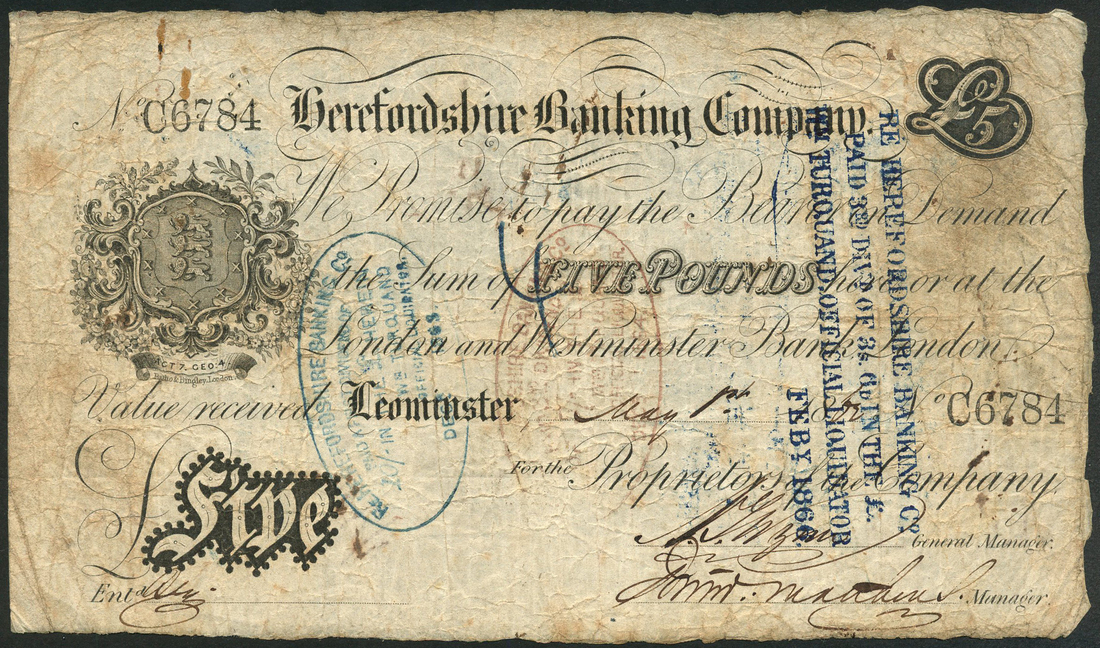 No C6784 Herefordshire Banking Company. £5
We Promise to pay the Bearer on Demand
the Sum of FIVE POUNDS here or at the
London and Westminster Bank London.
Value received Leominster May 1st No C6784
For the Proprietors of the Company
General Manager.
£ Five
Entd Manager
ACT 7. GEO: 4.
London
RE HEREFORDSHIRE BANKING Co
PAID 3RD DIVD OF 3s. 6D IN THE £.
WM TURQUAND, OFFICIAL LIQUIDATOR
FEBY 1866.
RE HEREFORDSHIRE BANKING Co
TURQUAND